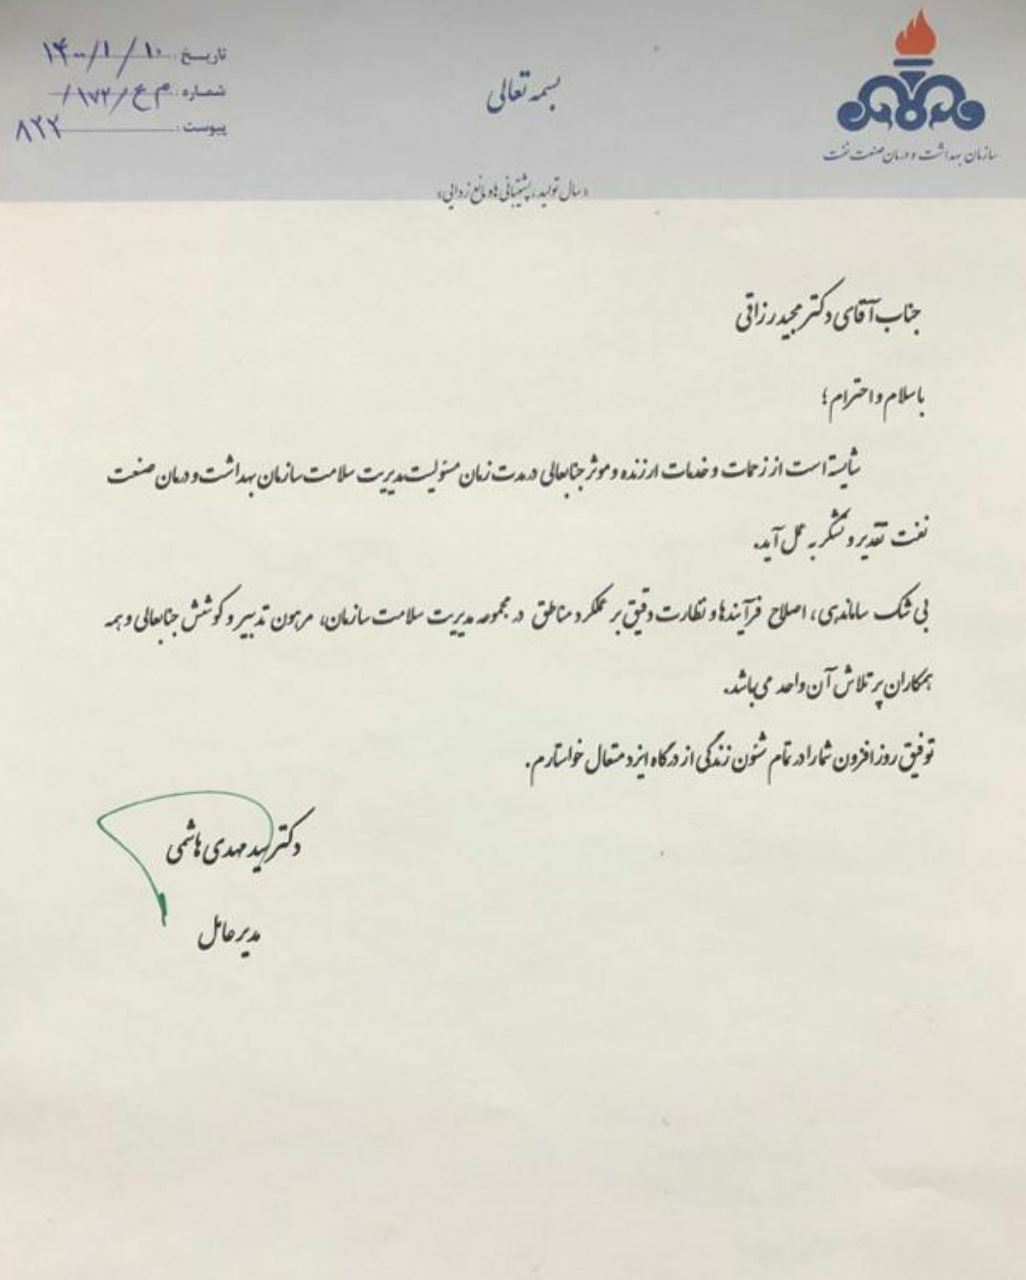 سازمان بهداشت و درمان صنعت نفت
بسمه تعالی
تاریخ: ۱۴۰۰/۱/۱۰
شماره: م ع/۱۷۲/
پیوست: ۸۲۲
«سال تولید، پشتیبانی ها و مانع زدایی»
جناب آقای دکتر مجید رزاقی
باسلام و احترام؛
شایسته است از زحمات و خدمات ارزنده و موثر جنابعالی در مدت زمان مسئولیت مدیریت سلامت سازمان بهداشت و درمان صنعت
نفت تقدیر و تشکر به عمل آید.
بی شک ساماندهی، اصلاح فرآیندها و نظارت دقیق بر عملکرد مناطق در مجموعه مدیریت سلامت سازمان، مرهون تدبیر و کوشش جنابعالی و همه
همکاران پر تلاش آن واحد می باشد.
توفیق روز افزون شما را در تمام شئون زندگی از درگاه ایزد متعال خواستارم.
دکتر سید مهدی هاشمی
مدیر عامل